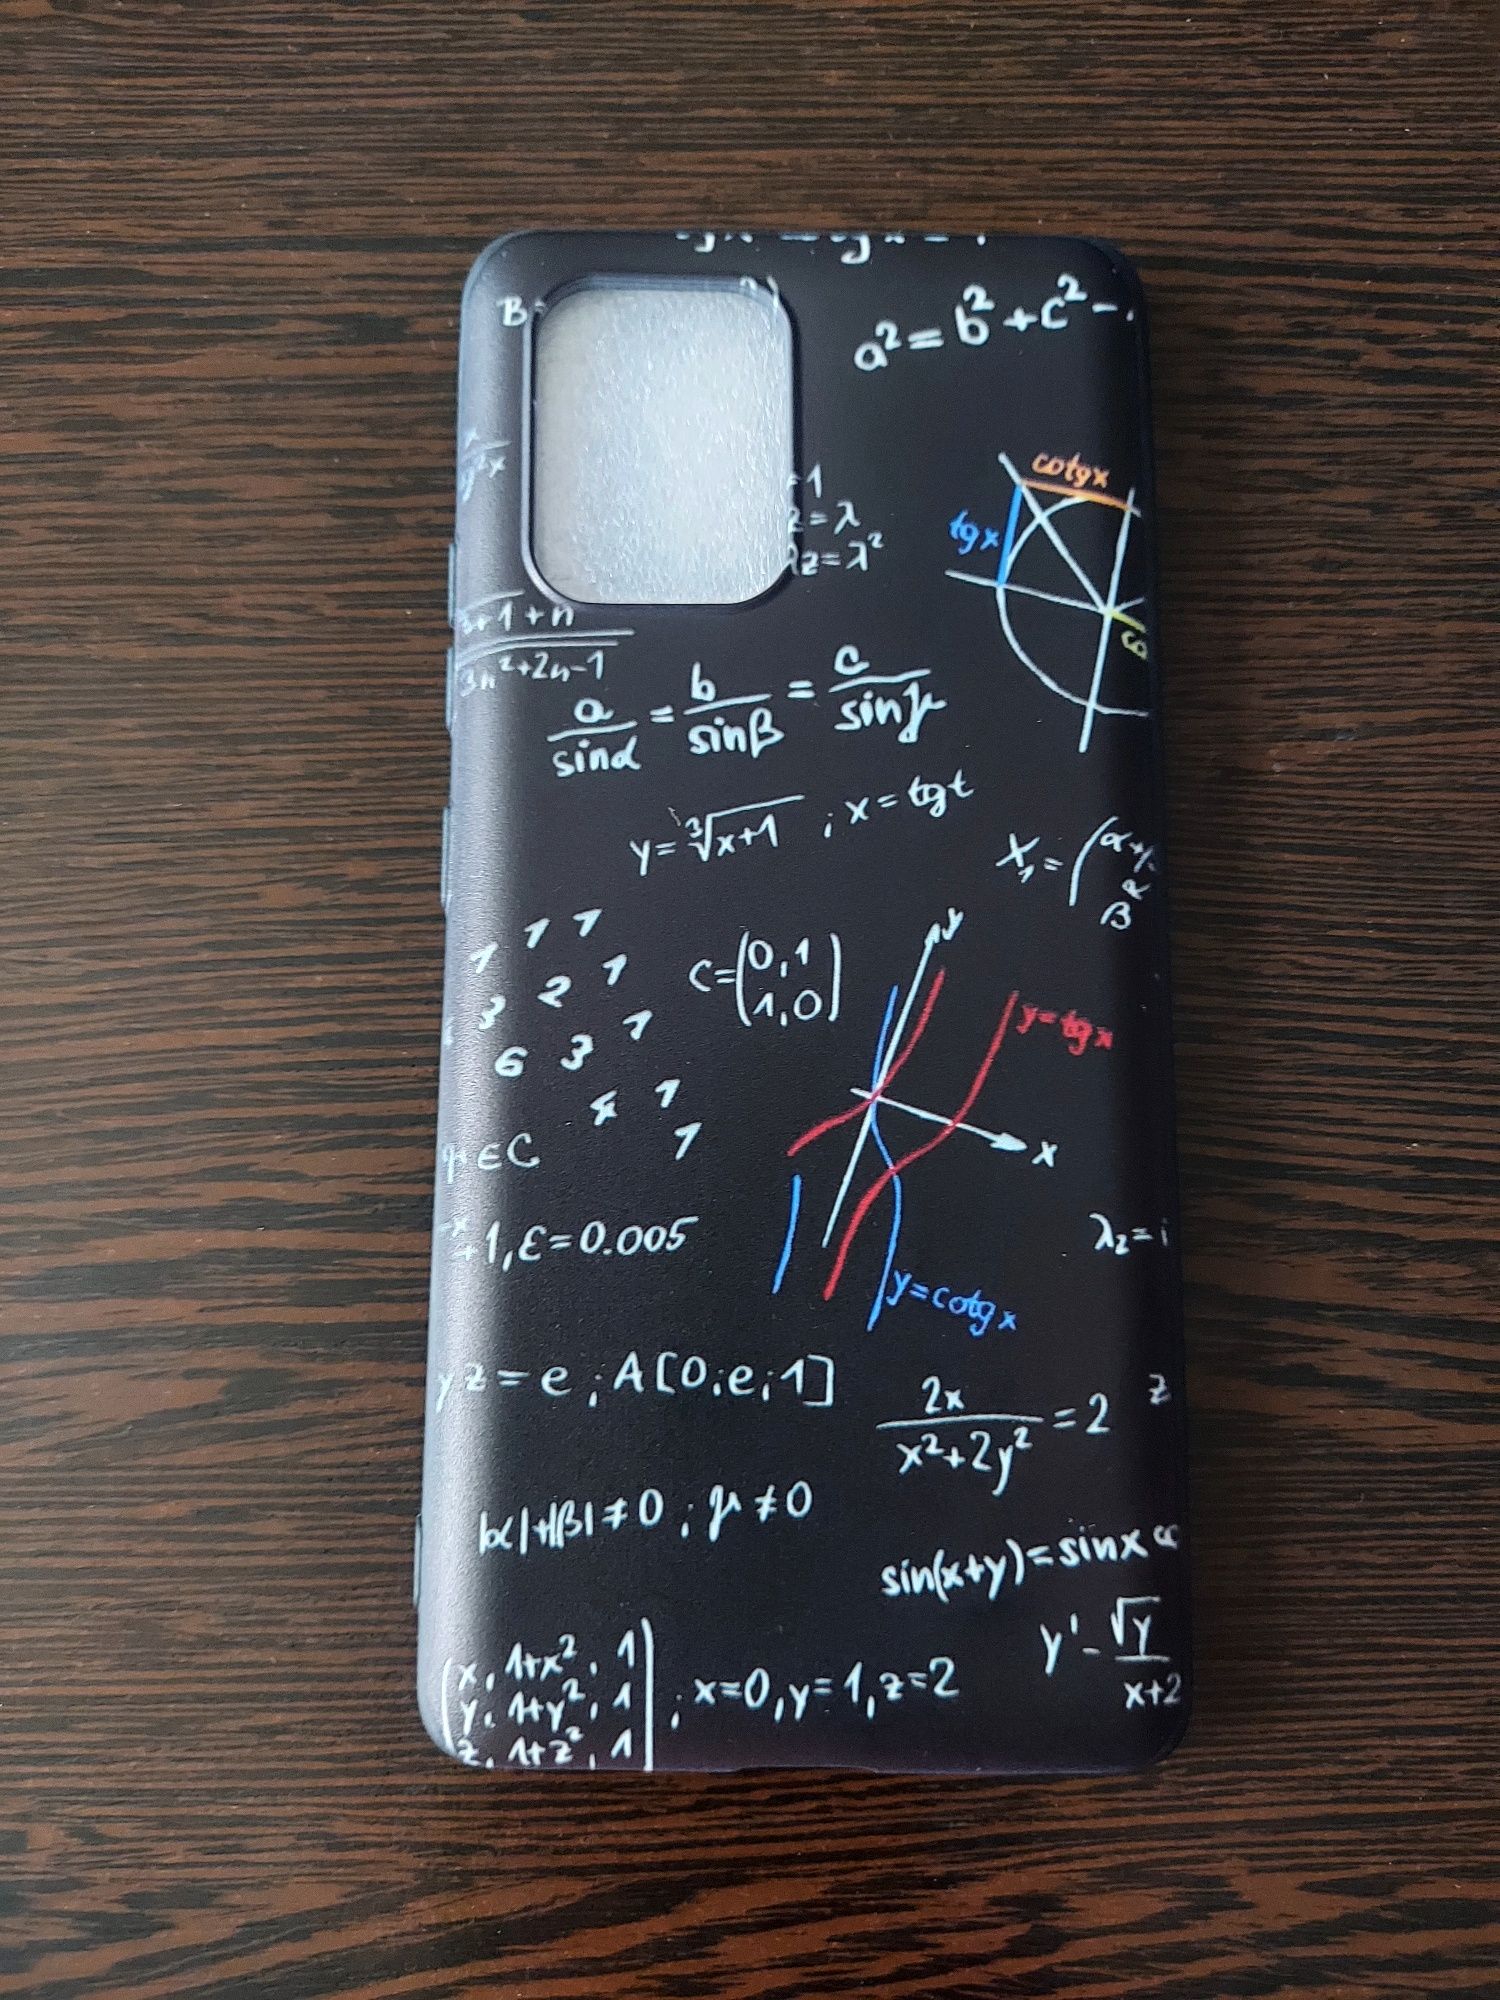 B
a² = b² + c² -
cotgx
tgx
= 1
= λ
z = λ²
+1+n
3n²+2n-1
a/sinα = b/sinβ = c/sinγ
y = ³√x+1 ; x = tgt
X₁ = (α+
α
β
1 1 1
3 2 1
6 3 1
1
1
C = (0,1
1,0)
y
y=tgx
x
∈C
+1, ε=0.005
λ₂= i
y=cotgx
y z = e ; A[0;e;1]
2x/x²+2y² = 2
z
|α|+|β| ≠ 0 ; γ ≠ 0
sin(x+y)=sinx
y' - √y/x+2
x, 1+x², 1
y, 1+y², 1
z, 1+z², 1
; x=0, y=1, z=2